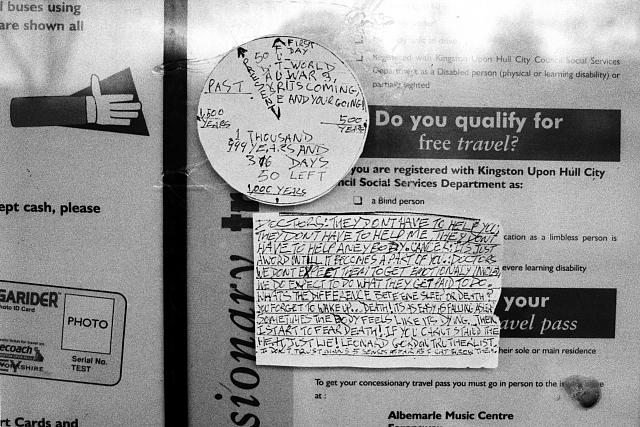 l buses using
are shown all
ept cash, please
GARIDER
Photo ID Card
PHOTO
Serial No.
TEST
ecoach
YORKSHIRE
rt Cards and
FIRST
DAY
50
WORLD
WAR 3,
IT IS COMING,
PAST
PRESENT
E AND YOUR GOING!
1,500
YEARS
500
YEARS
1 THOUSAND
999 YEARS AND
DAYS
50 LEFT
1,000 YEARS
DOCTORS: THEY DONT HAVE TO HELP YOU,
THEY DONT HAVE TO HELP ME, THEY DONT
HAVE TO HELP ANEY BODY. CANCER: ITS JUST
A WORD INTILL IT BECOMES A PART OF YOU. DOCTORS
WE DONT EXPECT THEN TO GET EMOTIONALY
WE DO EXPECT TO DO WHAT THEY GET PAID TO DO.
WHATS THE DIFFERENCE BETEENE SLEEP OR DEATH?
YOU FORGET TO WAKE UP... DEATH, ITS AS EASY AS FALLING ASLEEP
SOMETIMES THE BODY FEELS LIKE ITS DYING, THEN
I START TO FEAR DEATH! IF YOU CANT STAND THE
HEAT, JUST LIE! LEONARD GORDON TRUTHERLIST.
I DONT TRUST 5 SENSES AS FAR AS I CAN THEM
sionary tr
Registered with Kingston Upon Hull City Council Social Services
Department as a Disabled person (physical or learning disability) or
partially sighted
Do you qualify for
free travel?
you are registered with Kingston Upon Hull City
ncil Social Services Department as:
a Blind person
cation as a limbless person is
evere learning disability
your
avel pass
heir sole or main residence
To get your concessionary travel pass you must go in person to the
at :
Albemarle Music Centre